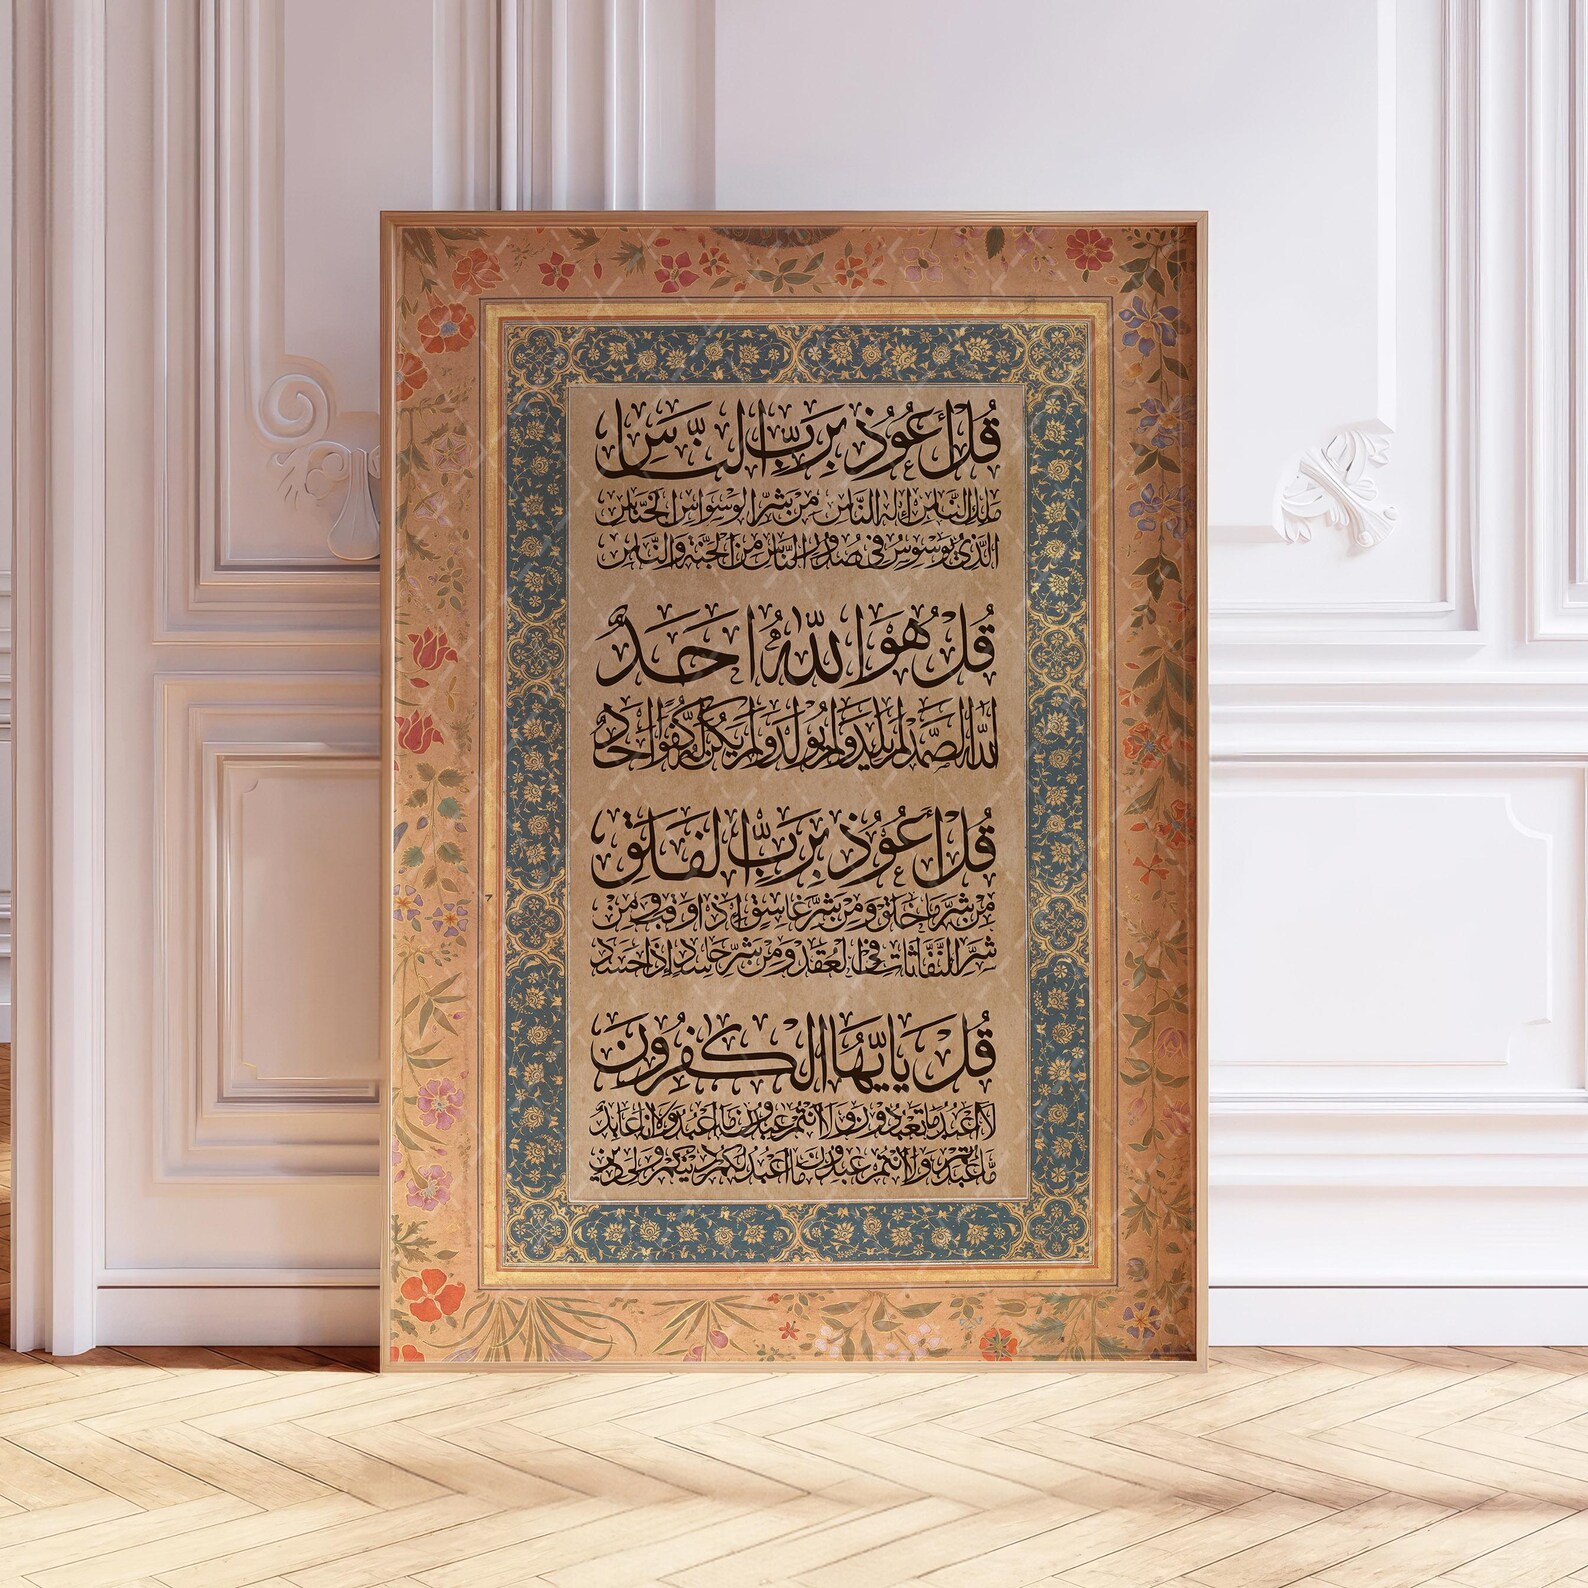 قُلْ أَعُوذُ بِرَبِّ النَّاسِ
مَلِكِ النَّاسِ إِلَهِ النَّاسِ مِنْ شَرِّ الْوَسْوَاسِ الْخَنَّاسِ
الَّذِي يُوَسْوِسُ فِي صُدُورِ النَّاسِ مِنَ الْجِنَّةِ وَالنَّاسِ
قُلْ هُوَ اللَّهُ أَحَدٌ
اللَّهُ الصَّمَدُ لَمْ يَلِدْ وَلَمْ يُولَدْ وَلَمْ يَكُنْ لَهُ كُفُوًا أَحَدٌ
قُلْ أَعُوذُ بِرَبِّ الْفَلَقِ
مِنْ شَرِّ مَا خَلَقَ وَمِنْ شَرِّ غَاسِقٍ إِذَا وَقَبَ وَمِنْ
شَرِّ النَّفَّاثَاتِ فِي الْعُقَدِ وَمِنْ شَرِّ حَاسِدٍ إِذَا حَسَدَ
قُلْ يَا أَيُّهَا الْكَفِرُونَ
لَا أَعْبُدُ مَا تَعْبُدُونَ وَلَا أَنْتُمْ عَبِدُونَ مَا أَعْبُدُ وَلَا أَنَا عَابِدٌ
مَّا عَبَدتُّمْ وَلَا أَنْتُمْ عَبِدُونَ مَا أَعْبُدُ لَكُمْ دِينُكُمْ وَلِيَ دِينِ